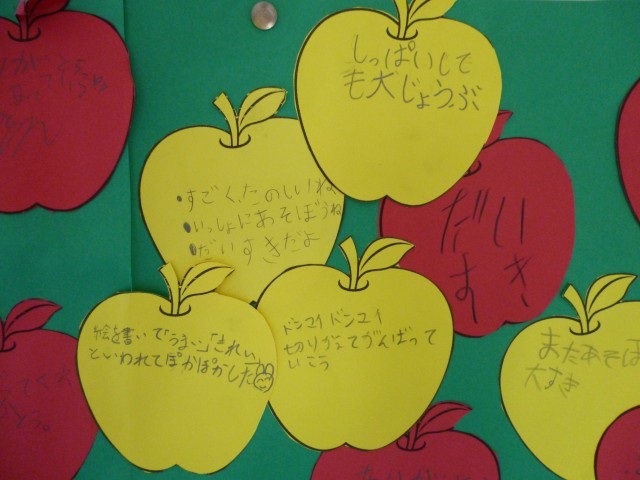 しっぱいしで
も大じょうぶ
・すごくたのしいね
・いっしょにあそぼうね
・だいすきだよ
だい
すき
絵を書いて「うまい」「きれい」
といわれてぽかぽかした
ドンマイドンマイ
切りかえてがんばって
いこう
またあそぼ
大すき